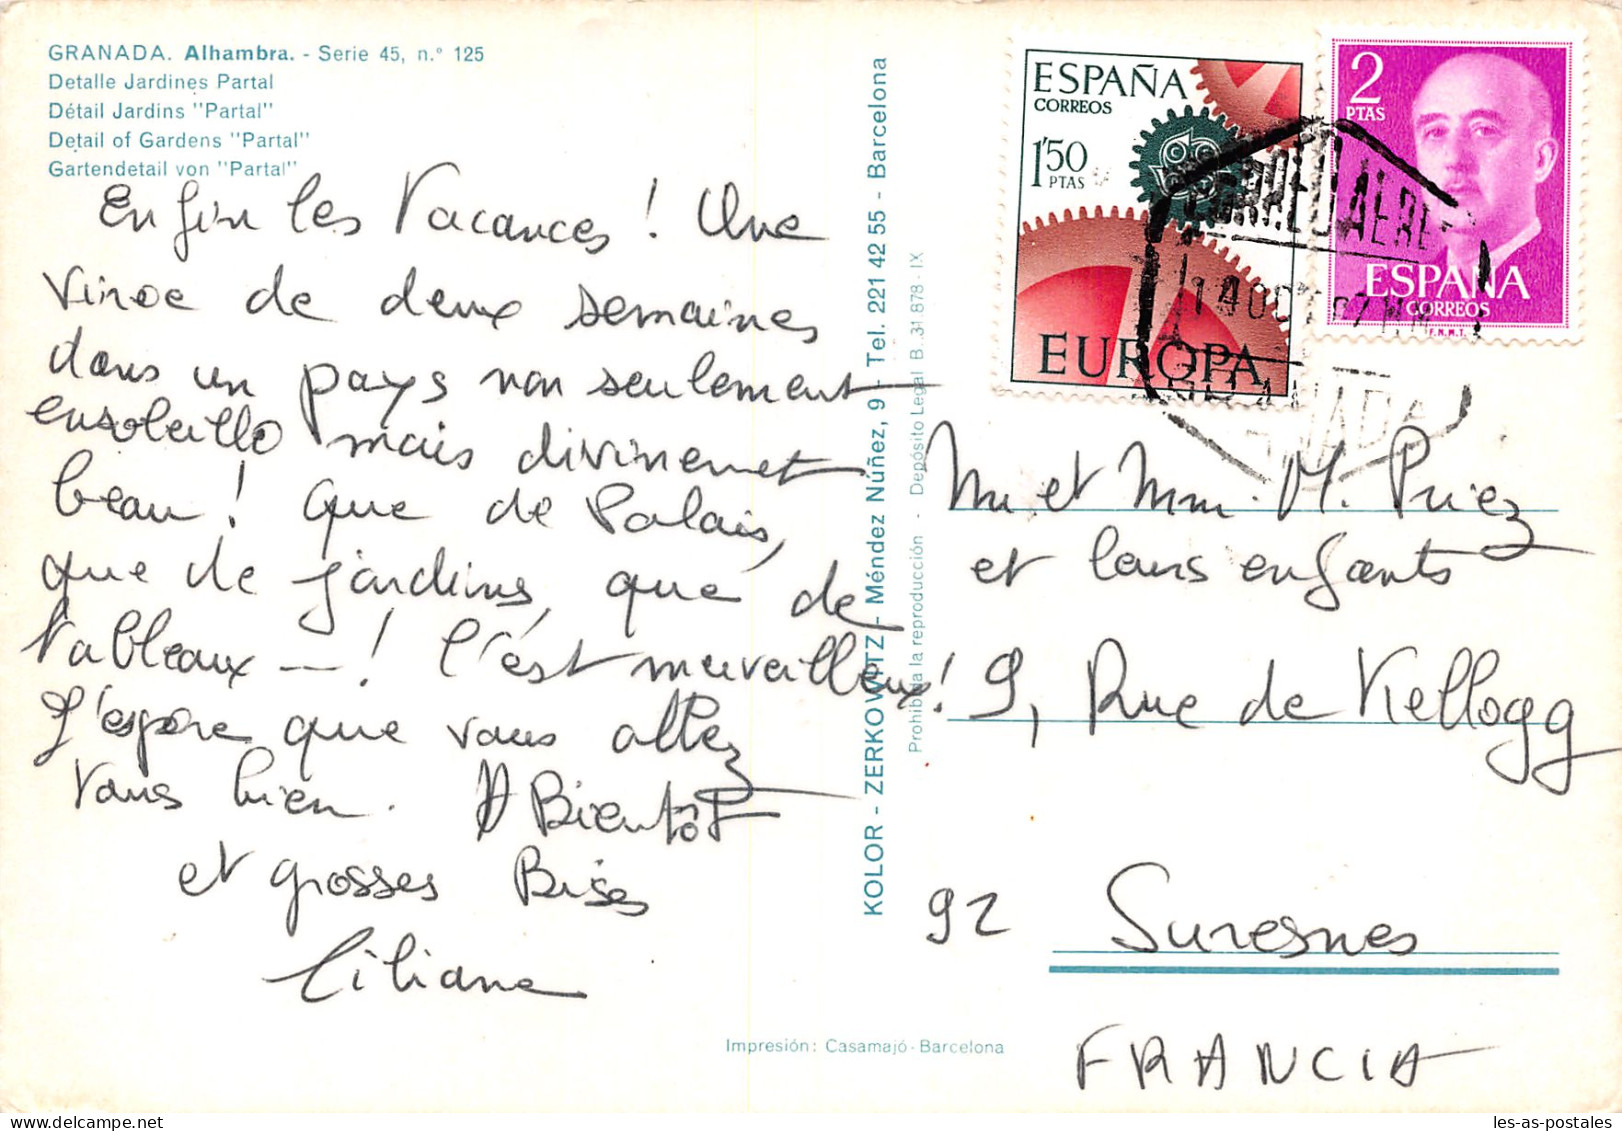 GRANADA. Alhambra. - Serie 45, n.º 125
Detalle Jardines Partal
Détail Jardins "Partal"
Detail of Gardens "Partal"
Gartendetail von "Partal"
Enfin les Vacances ! Une
viroe de deux semaines
dans un pays non seulement
ensoleillo mais divinement
beau ! que de Palais,
que de jardins, que de
tableaux —— ! C'est merveilleux !
J'espère que vous allez
tous bien. A Bientôt
et grosses Bises
Liliane
KOLOR - ZERKOWITZ - Méndez Núñez, 9 - Tel. 221 42 55 - Barcelona
Prohibida la reproducción - Depósito Legal B. 31.878 - IX
Impresión: Casamajó - Barcelona
ESPAÑA
CORREOS
1'50
PTAS
EUROPA
2
PTAS
ESPAÑA
CORREOS
F.N.M.T.
CORREO AEREO
GRANADA
Mr et Mme M. Priez
et leurs enfants
9, Rue de Kellogg
92 Suresnes
FRANCIA
les-as-postales